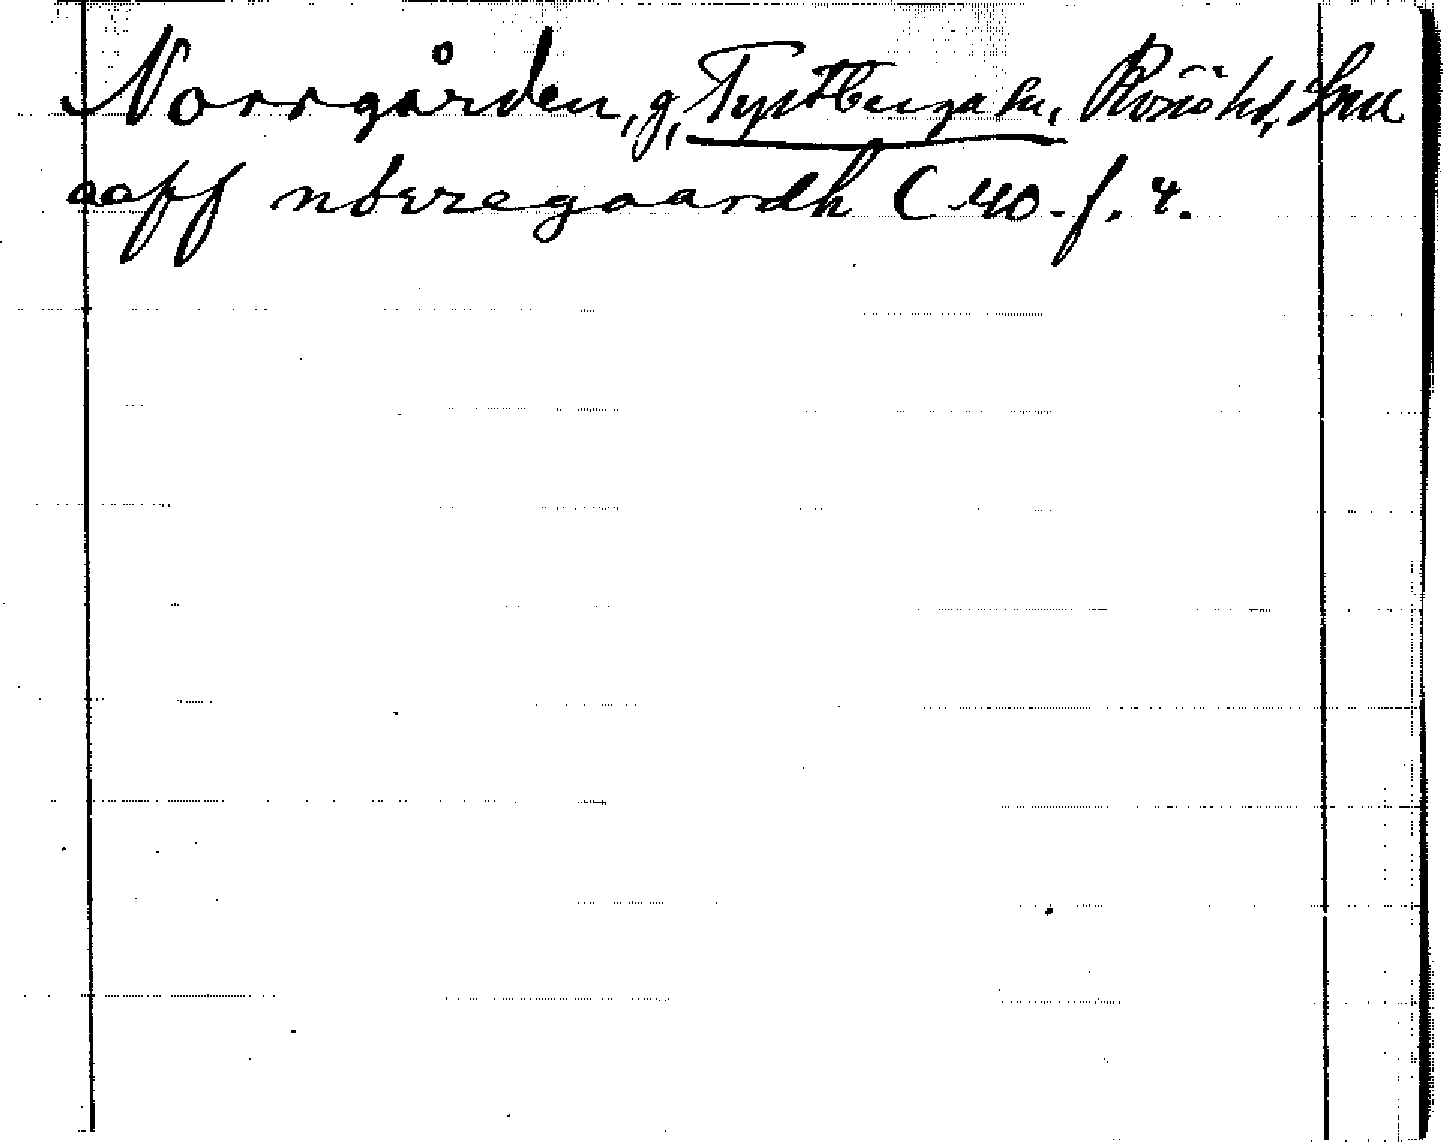 Norrgården, g, Tystberga sn, Rönö hd, Sml
aoff nderegaardh C 40. f. 4.